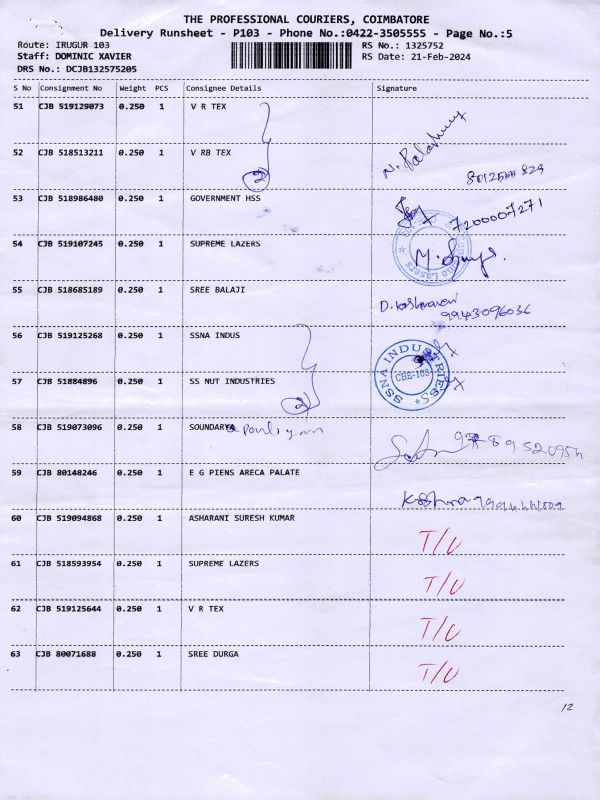 THE PROFESSIONAL COURIERS, COIMBATORE
Delivery Runsheet - P103 - Phone No.:0422-3505555 - Page No.:5
Route: IRUGUR 103 RS No.: 1325752
Staff: DOMINIC XAVIER RS Date: 21-Feb-2024
DRS No.: DCJB132575205
S No Consignment No Weight PCS Consignee Details Signature
51 CJB 519129073 0.250 1 V R TEX
52 CJB 518513211 0.250 1 V RB TEX
2
53 CJB 518986480 0.250 1 GOVERNMENT HSS
7200007271
54 CJB 519107245 0.250 1 SUPREME LAZERS
55 CJB 518685189 0.250 1 SREE BALAJI
9943096036
56 CJB 519125268 0.250 1 SSNA INDUS
SSNA INDUSTRIESS
CBE-103
57 CJB 51884896 0.250 1 SS NUT INDUSTRIES
2
58 CJB 519073096 0.250 1 SOUNDARYA
59 CJB 80148246 0.250 1 E G PIENS ARECA PALATE
60 CJB 519094868 0.250 1 ASHARANI SURESH KUMAR
T/U
61 CJB 518593954 0.250 1 SUPREME LAZERS
T/U
62 CJB 519125644 0.250 1 V R TEX
T/U
63 CJB 80071688 0.250 1 SREE DURGA
T/U
12